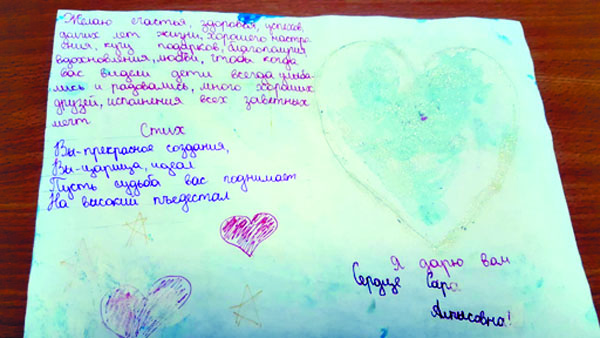 Желаю счастья, здоровья, успехов,
долгих лет жизни. хорошего настро
ения, кучу подарков, благополучия
вдохновления, любви, чтобы когда
вас видели дети всегда улыба-
лись и радовались, много хороших
друзей, исполнения всех заветных
мечт
Стих
Вы-прекрасное создания,
Вы-царица, идеал
Пусть судьба вас поднимает
На высокий пъедестал
Я дарю вам
Сердце Сара
Алпысовна!